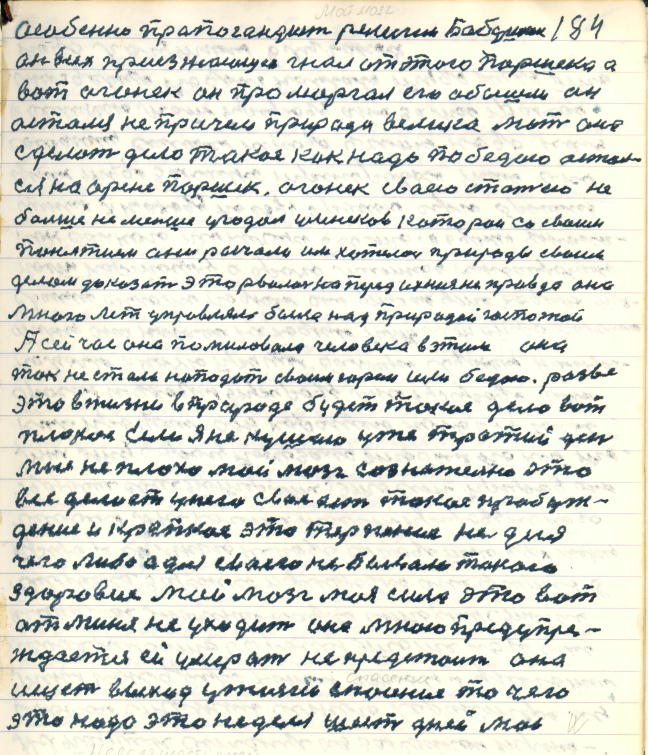 Мой мозг
особенно пропогандит религии Бабушки 184
он всех приезжающих гнал от этого Паршека а
вот огонек он проморгал его обошли он
остался не причем природа велика мот она
сделат дело такое как надо победою остал
ся на арене Паршек. огонек своею статею не
болше не менше угодил
понятием они росчоли им хотелос природы своим
делом доказат это рвалос но перед ихния не правда она
много лет управляла была над природой госпожой
А сейчас она помиловала человека в этом она
так не стала нападат своим горем или бедою. разве
это в жизни в природе будет такое дело вот
плохое если я не кушаю уже третий ден
мне не плохо мой мозг сознателно это
все делает у него свое ест такое пробуж-
дение и крепкое это терпение не для
чего либо а для своего не бывалого такого
здоровия мой мозг моя сила это вот
от миня не уходит она много предупре-
ждается ей умерат не предстоит она
ищет выход у жизни спасение
спасения
то чего
это надо это неделя шест дней мое